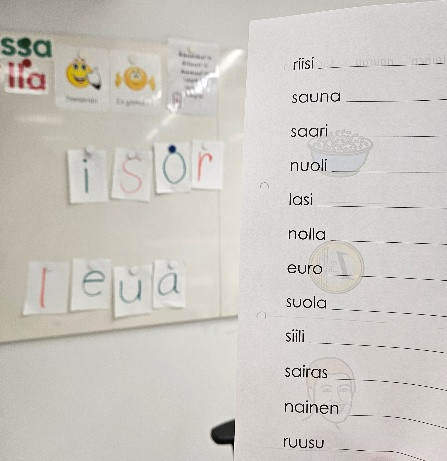 ssa
lla
i s o r
l e u a
riisi
sauna
saari
nuoli
lasi
nolla
euro
suola
siili
sairas
nainen
ruusu